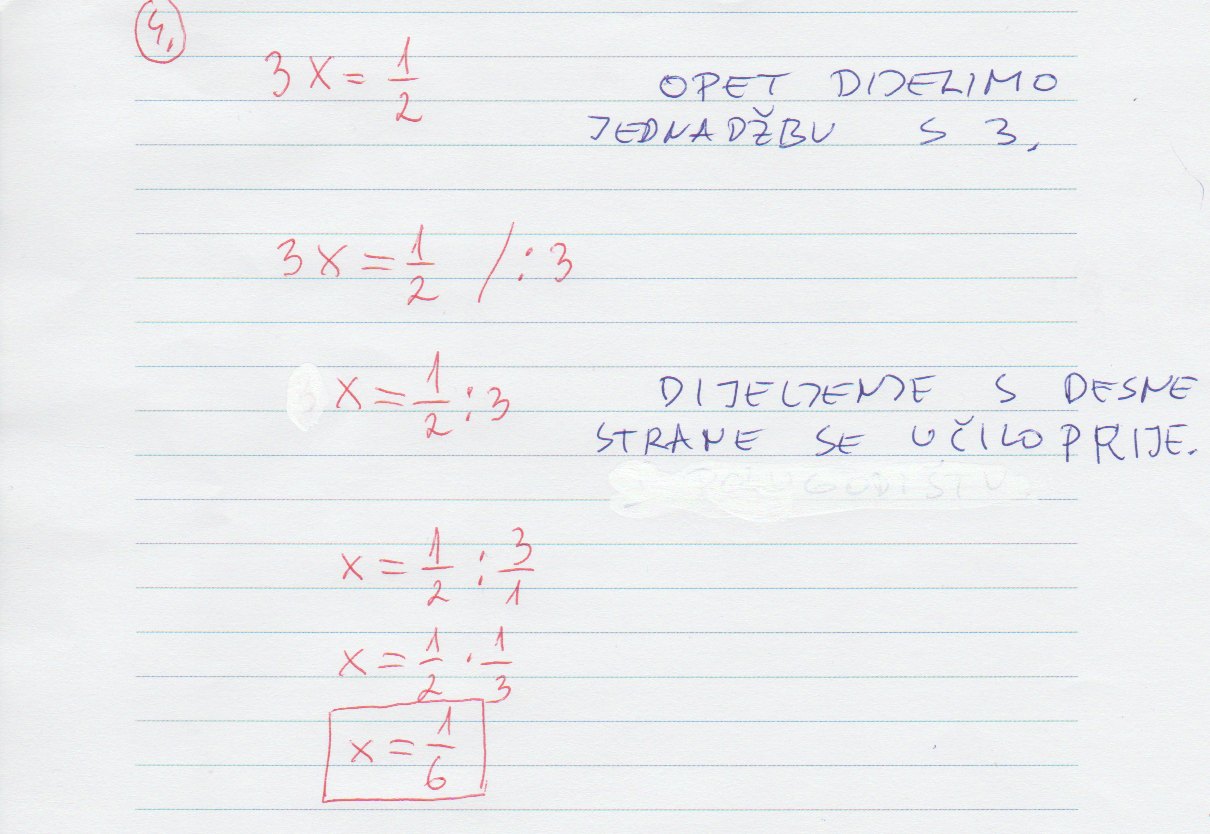 4.
3x = 1/2
OPET DIJELIMO
JEDNADŽBU S 3.
3x = 1/2 /:3
x = 1/2 : 3
DIJELJENJE S DESNE
STRANE SE UČILO PRIJE.
x = 1/2 : 3/1
x = 1/2 · 1/3
x = 1/6